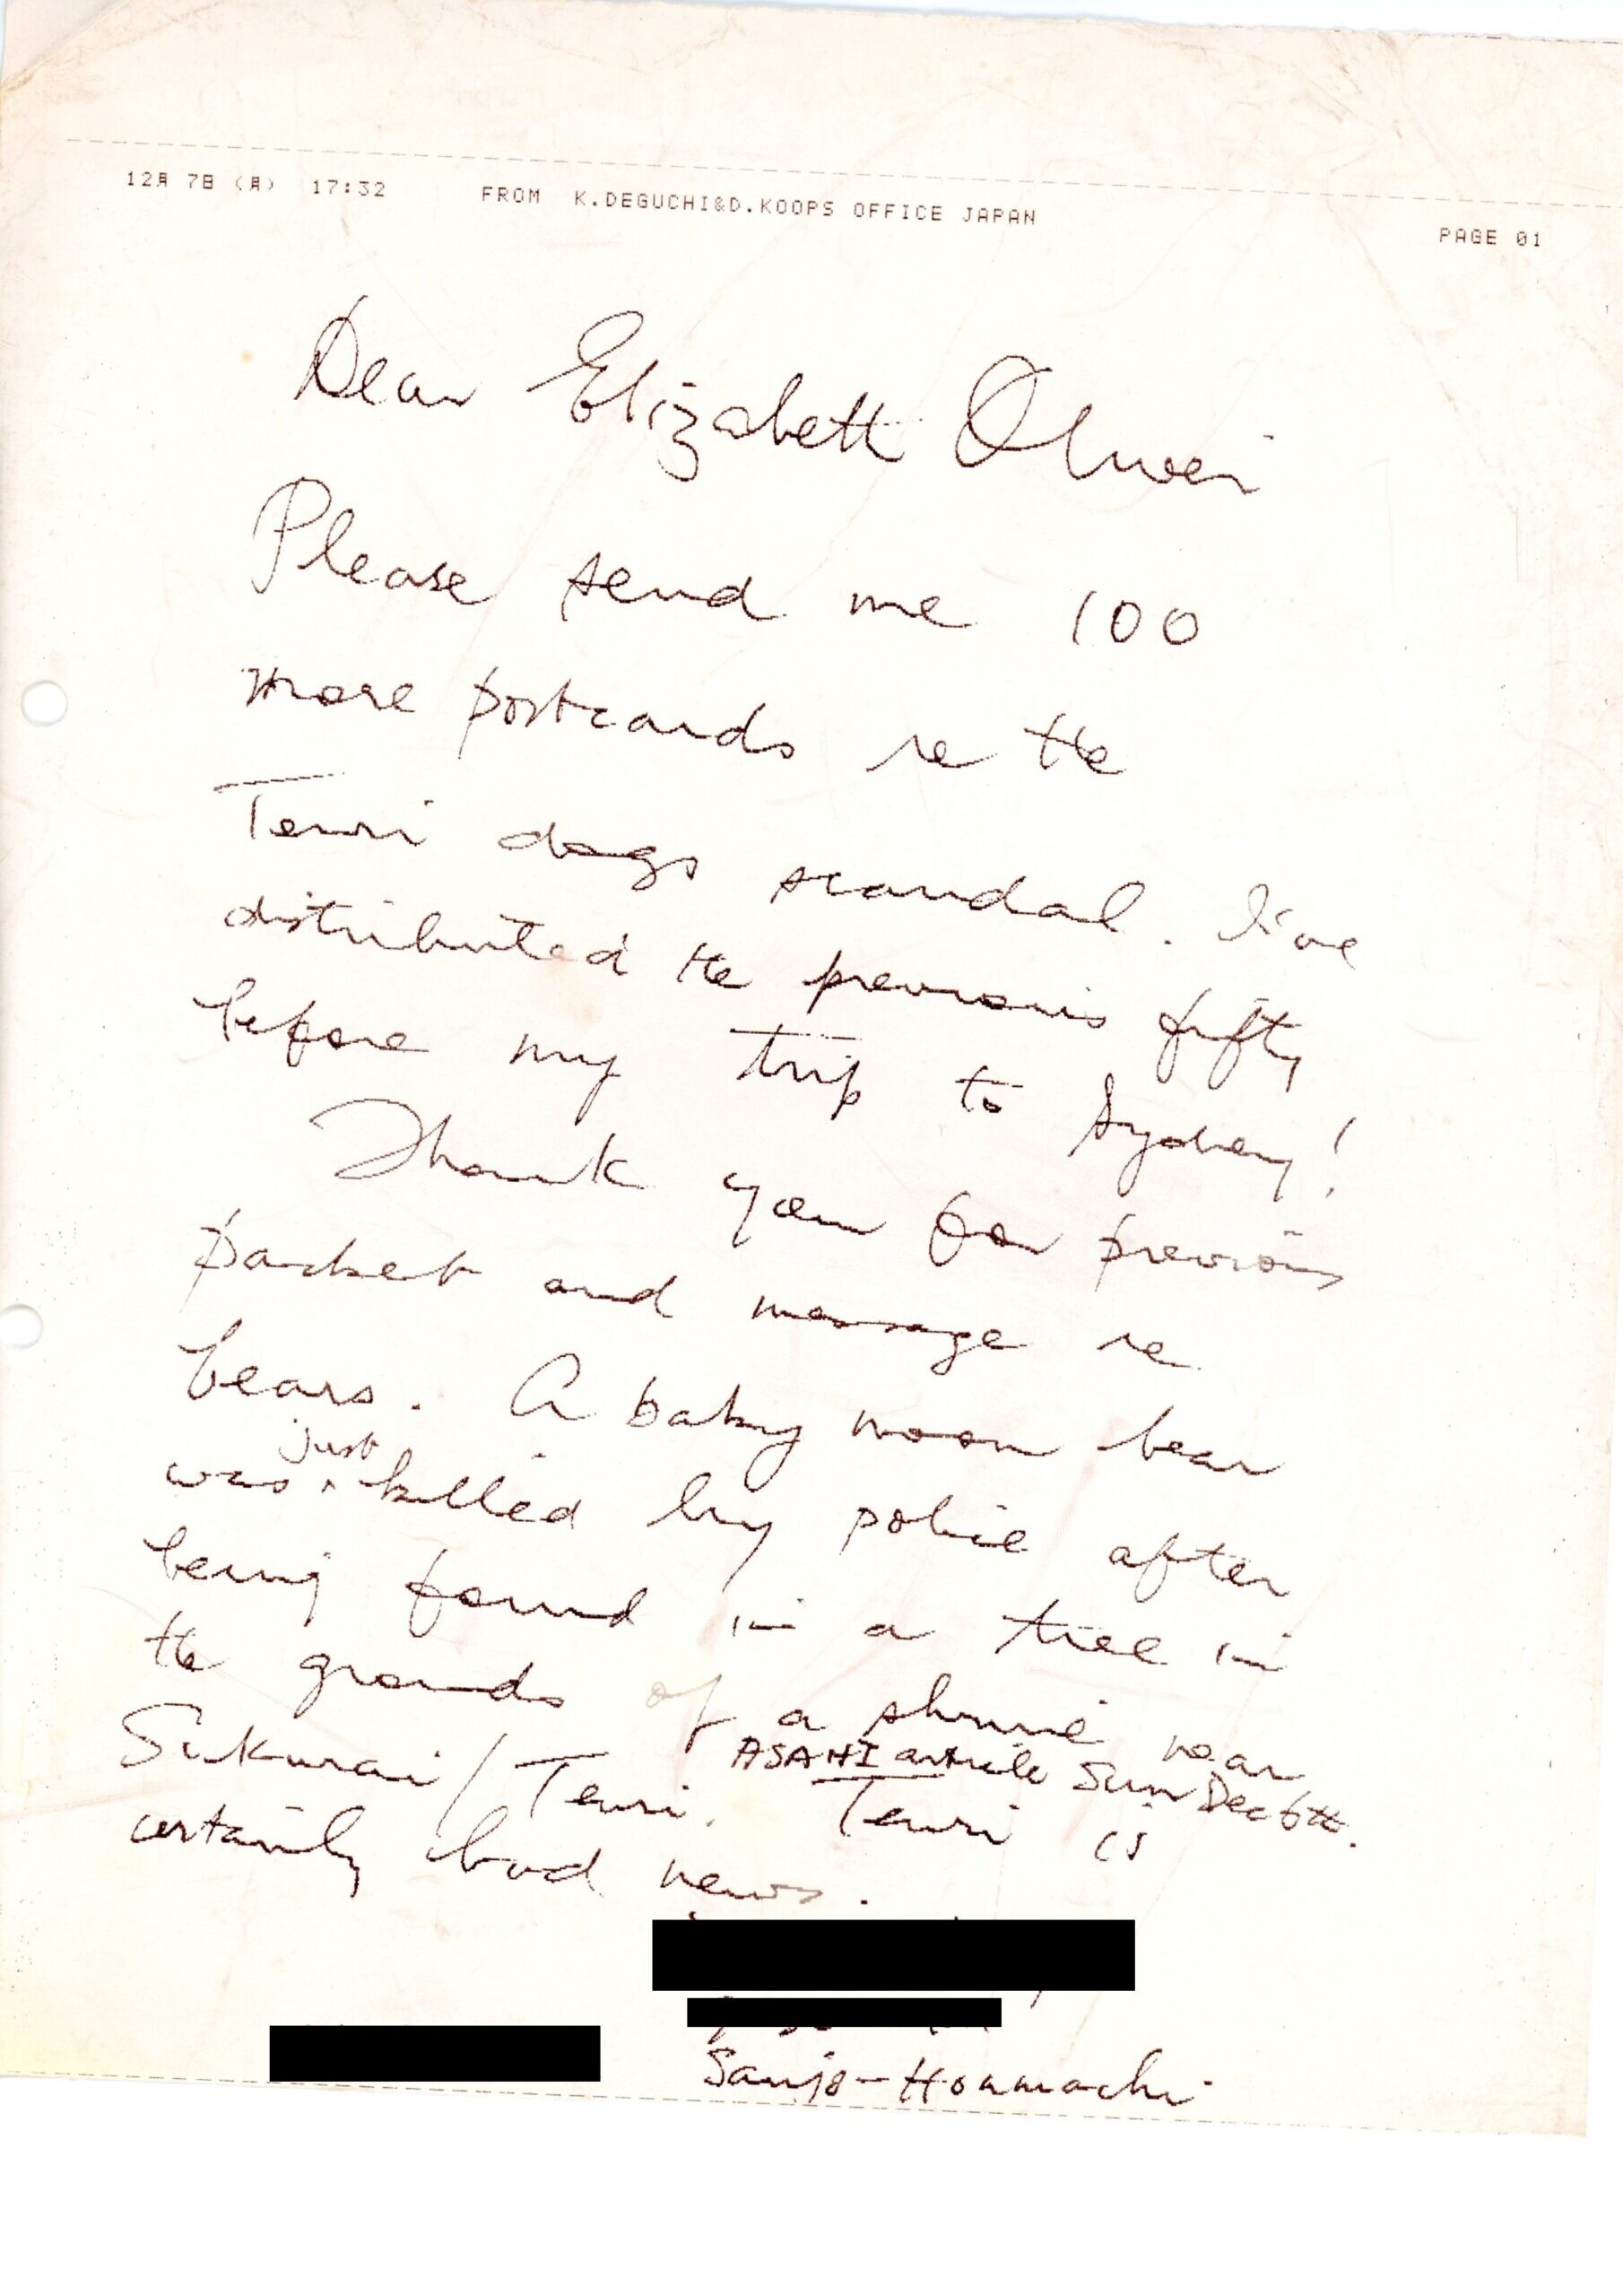 12月 7日 (月) 17:32 FROM K.DEGUCHI&D.KOOPS OFFICE JAPAN PAGE 01
Dear Elizabeth Oliver
Please send me 100
more postcards re the
Tenri dogs scandal. I've
distributed the previous fifty
before my trip to Sydney!
Thank you for previous
packet and message re
bears. A baby moon bear
was just killed by police after
being found in a tree in
the grounds of a shrine near
ASAHI article Sun Dec 6th.
Sakurai/Tenri. Tenri is
certainly bad news.
Sanjo-Honmachi